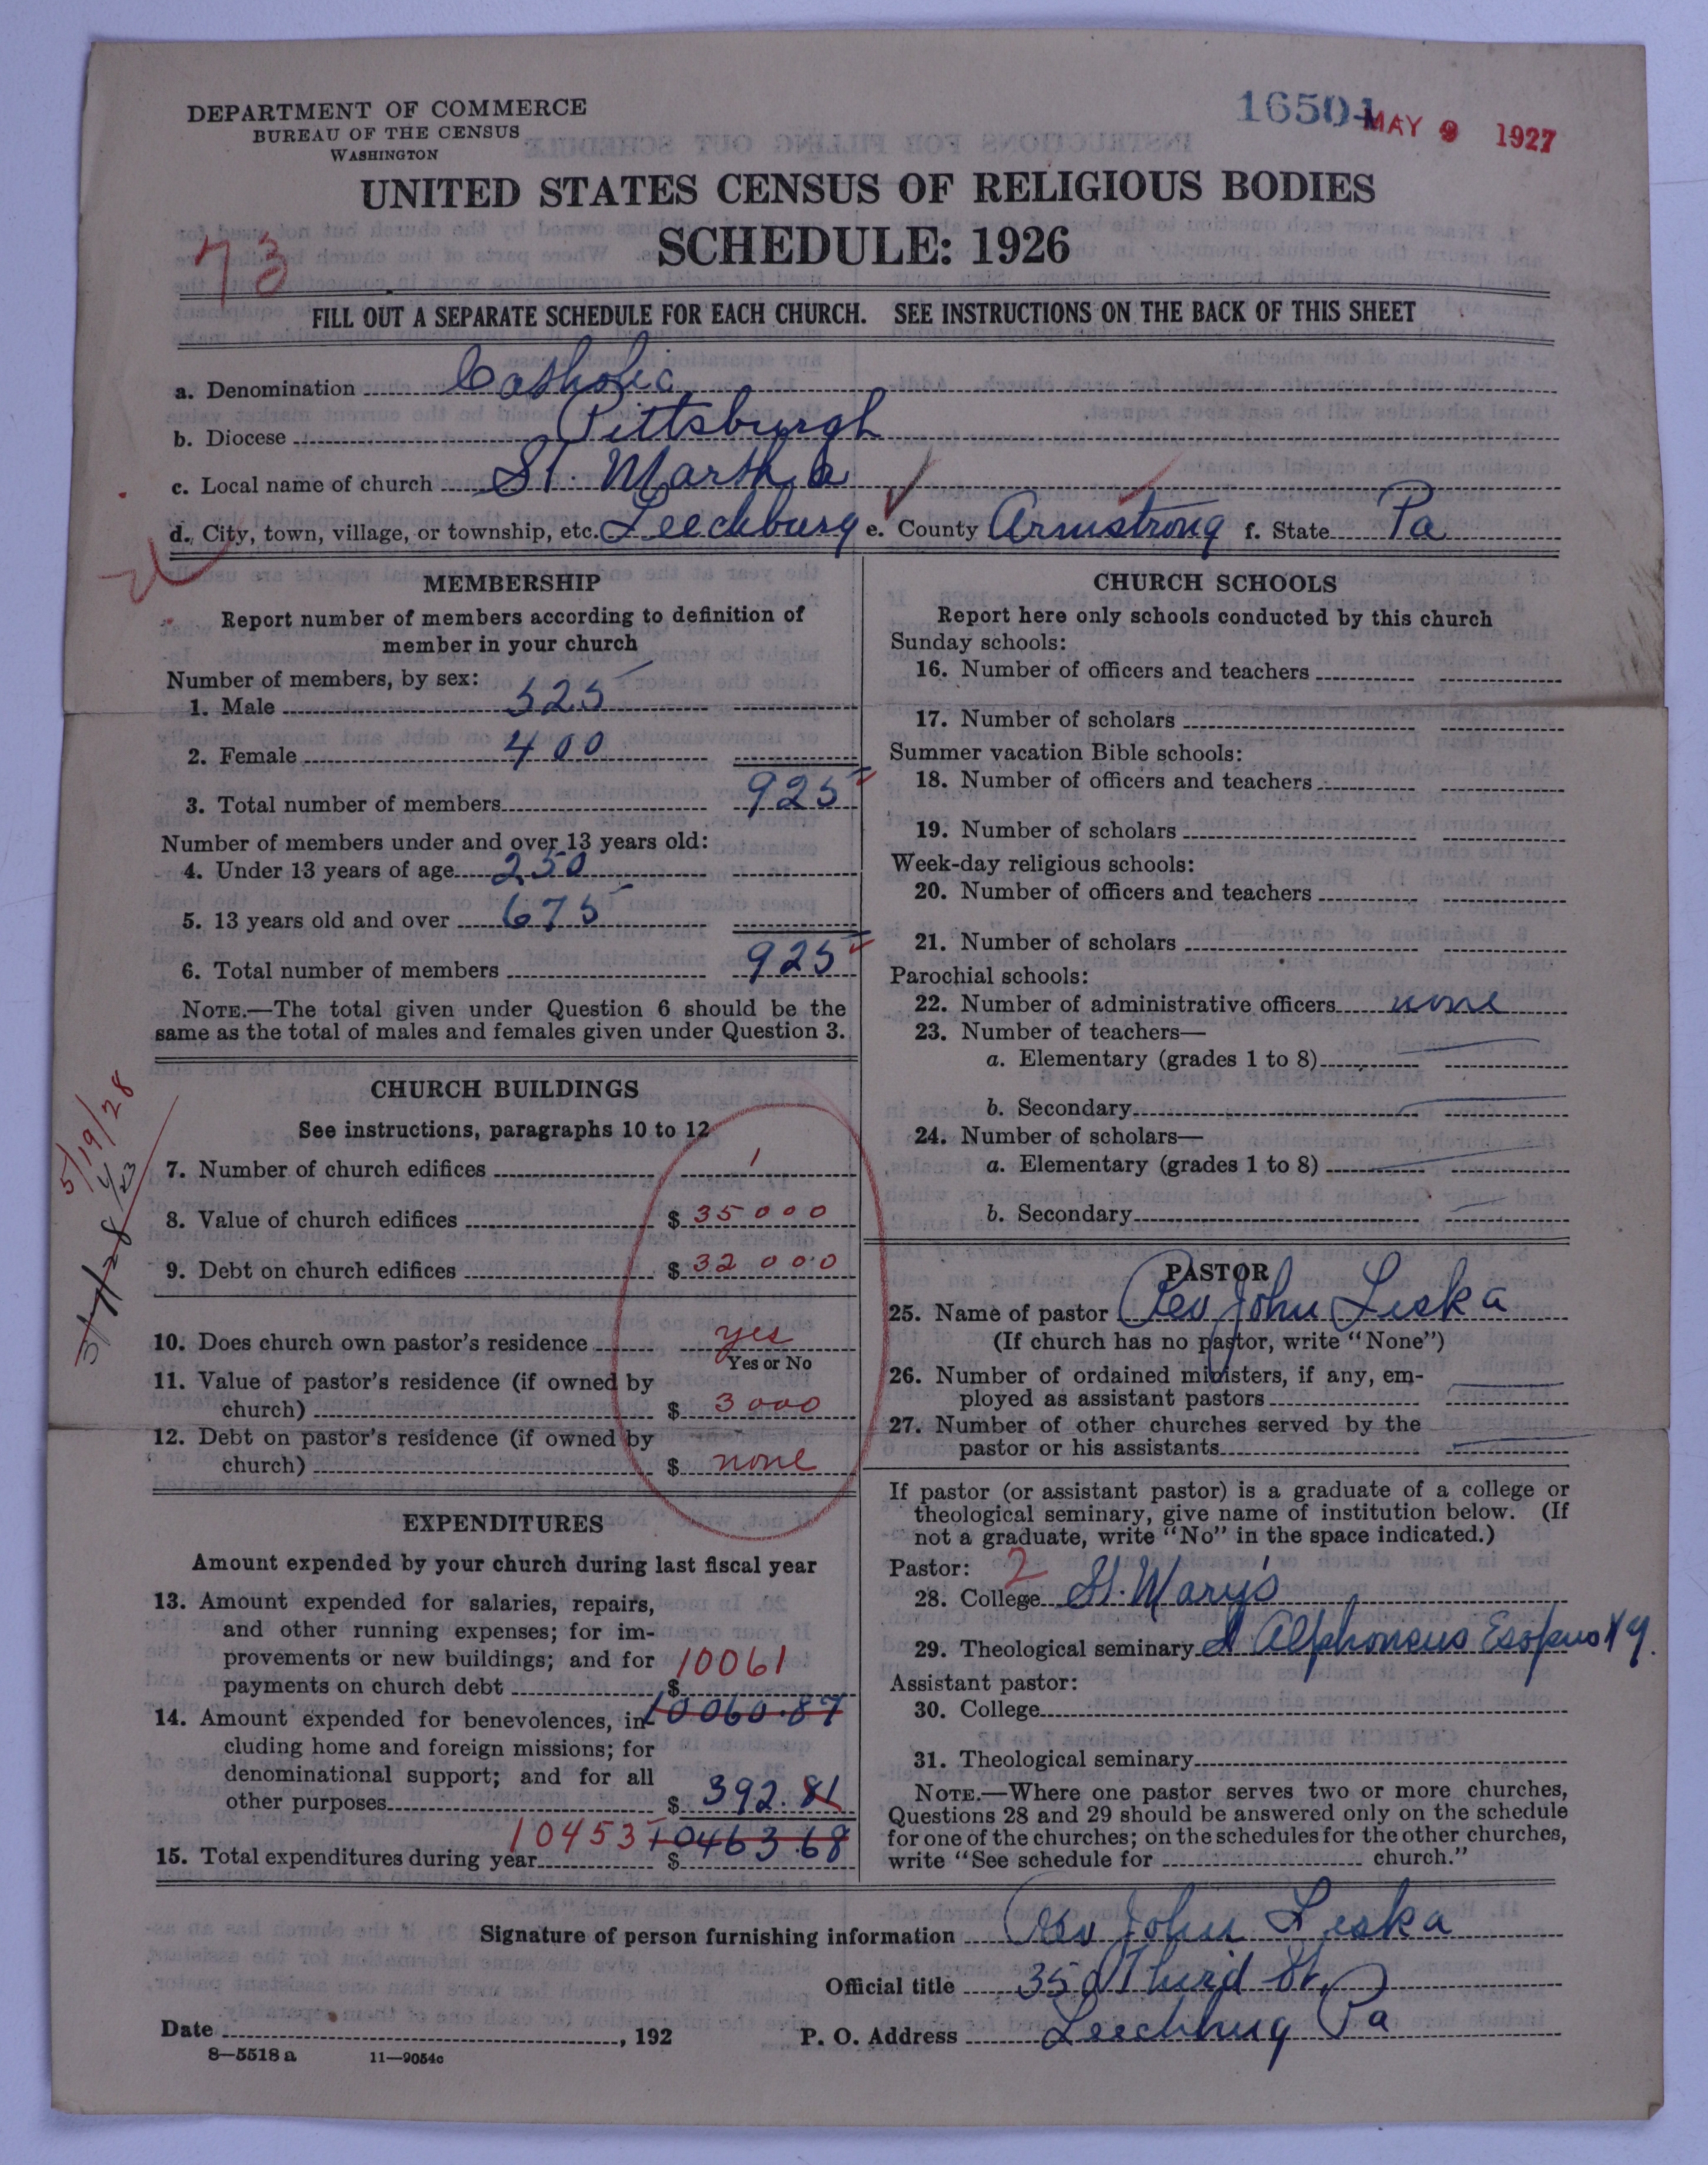 DEPARTMENT OF COMMERCE
BUREAU OF THE CENSUS
WASHINGTON
16504 MAY 9 1927
UNITED STATES CENSUS OF RELIGIOUS BODIES
SCHEDULE: 1926
73
FILL OUT A SEPARATE SCHEDULE FOR EACH CHURCH. SEE INSTRUCTIONS ON THE BACK OF THIS SHEET
a. Denomination Catholic
b. Diocese Pittsburgh
c. Local name of church St. Martha
d. City, town, village, or township, etc. Leechburg e. County Armstrong f. State Pa
MEMBERSHIP
Report number of members according to definition of
member in your church
Number of members, by sex:
1. Male 525
2. Female 400
3. Total number of members 925
Number of members under and over 13 years old:
4. Under 13 years of age 250
5. 13 years old and over 675
6. Total number of members 925
NOTE.—The total given under Question 6 should be the
same as the total of males and females given under Question 3.
CHURCH BUILDINGS
See instructions, paragraphs 10 to 12
5/19/28
3/7/28
4/23
7. Number of church edifices 1
8. Value of church edifices $ 35000
9. Debt on church edifices $ 32000
10. Does church own pastor's residence yes
Yes or No
11. Value of pastor's residence (if owned by
church) $ 3000
12. Debt on pastor's residence (if owned by
church) $ none
EXPENDITURES
Amount expended by your church during last fiscal year
13. Amount expended for salaries, repairs,
and other running expenses; for im-
provements or new buildings; and for 10061
payments on church debt $
10060.87
14. Amount expended for benevolences, in-
cluding home and foreign missions; for
denominational support; and for all
other purposes $ 392.81
10453 10463.68
15. Total expenditures during year $
CHURCH SCHOOLS
Report here only schools conducted by this church
Sunday schools:
16. Number of officers and teachers
17. Number of scholars
Summer vacation Bible schools:
18. Number of officers and teachers
19. Number of scholars
Week-day religious schools:
20. Number of officers and teachers
21. Number of scholars
Parochial schools:
22. Number of administrative officers none
23. Number of teachers—
a. Elementary (grades 1 to 8)
b. Secondary
24. Number of scholars—
a. Elementary (grades 1 to 8)
b. Secondary
PASTOR
25. Name of pastor Rev John Liska
(If church has no pastor, write "None")
26. Number of ordained ministers, if any, em-
ployed as assistant pastors
27. Number of other churches served by the
pastor or his assistants
If pastor (or assistant pastor) is a graduate of a college or
theological seminary, give name of institution below. (If
not a graduate, write "No" in the space indicated.)
Pastor: 2
28. College St. Mary's
29. Theological seminary St Alphonsus Esopus NY.
Assistant pastor:
30. College
31. Theological seminary
NOTE.—Where one pastor serves two or more churches,
Questions 28 and 29 should be answered only on the schedule
for one of the churches; on the schedules for the other churches,
write "See schedule for church."
Signature of person furnishing information Rev John Liska
Official title 350 Third St.
Date , 192 P. O. Address Leechburg Pa
8—5518 a 11—9054c